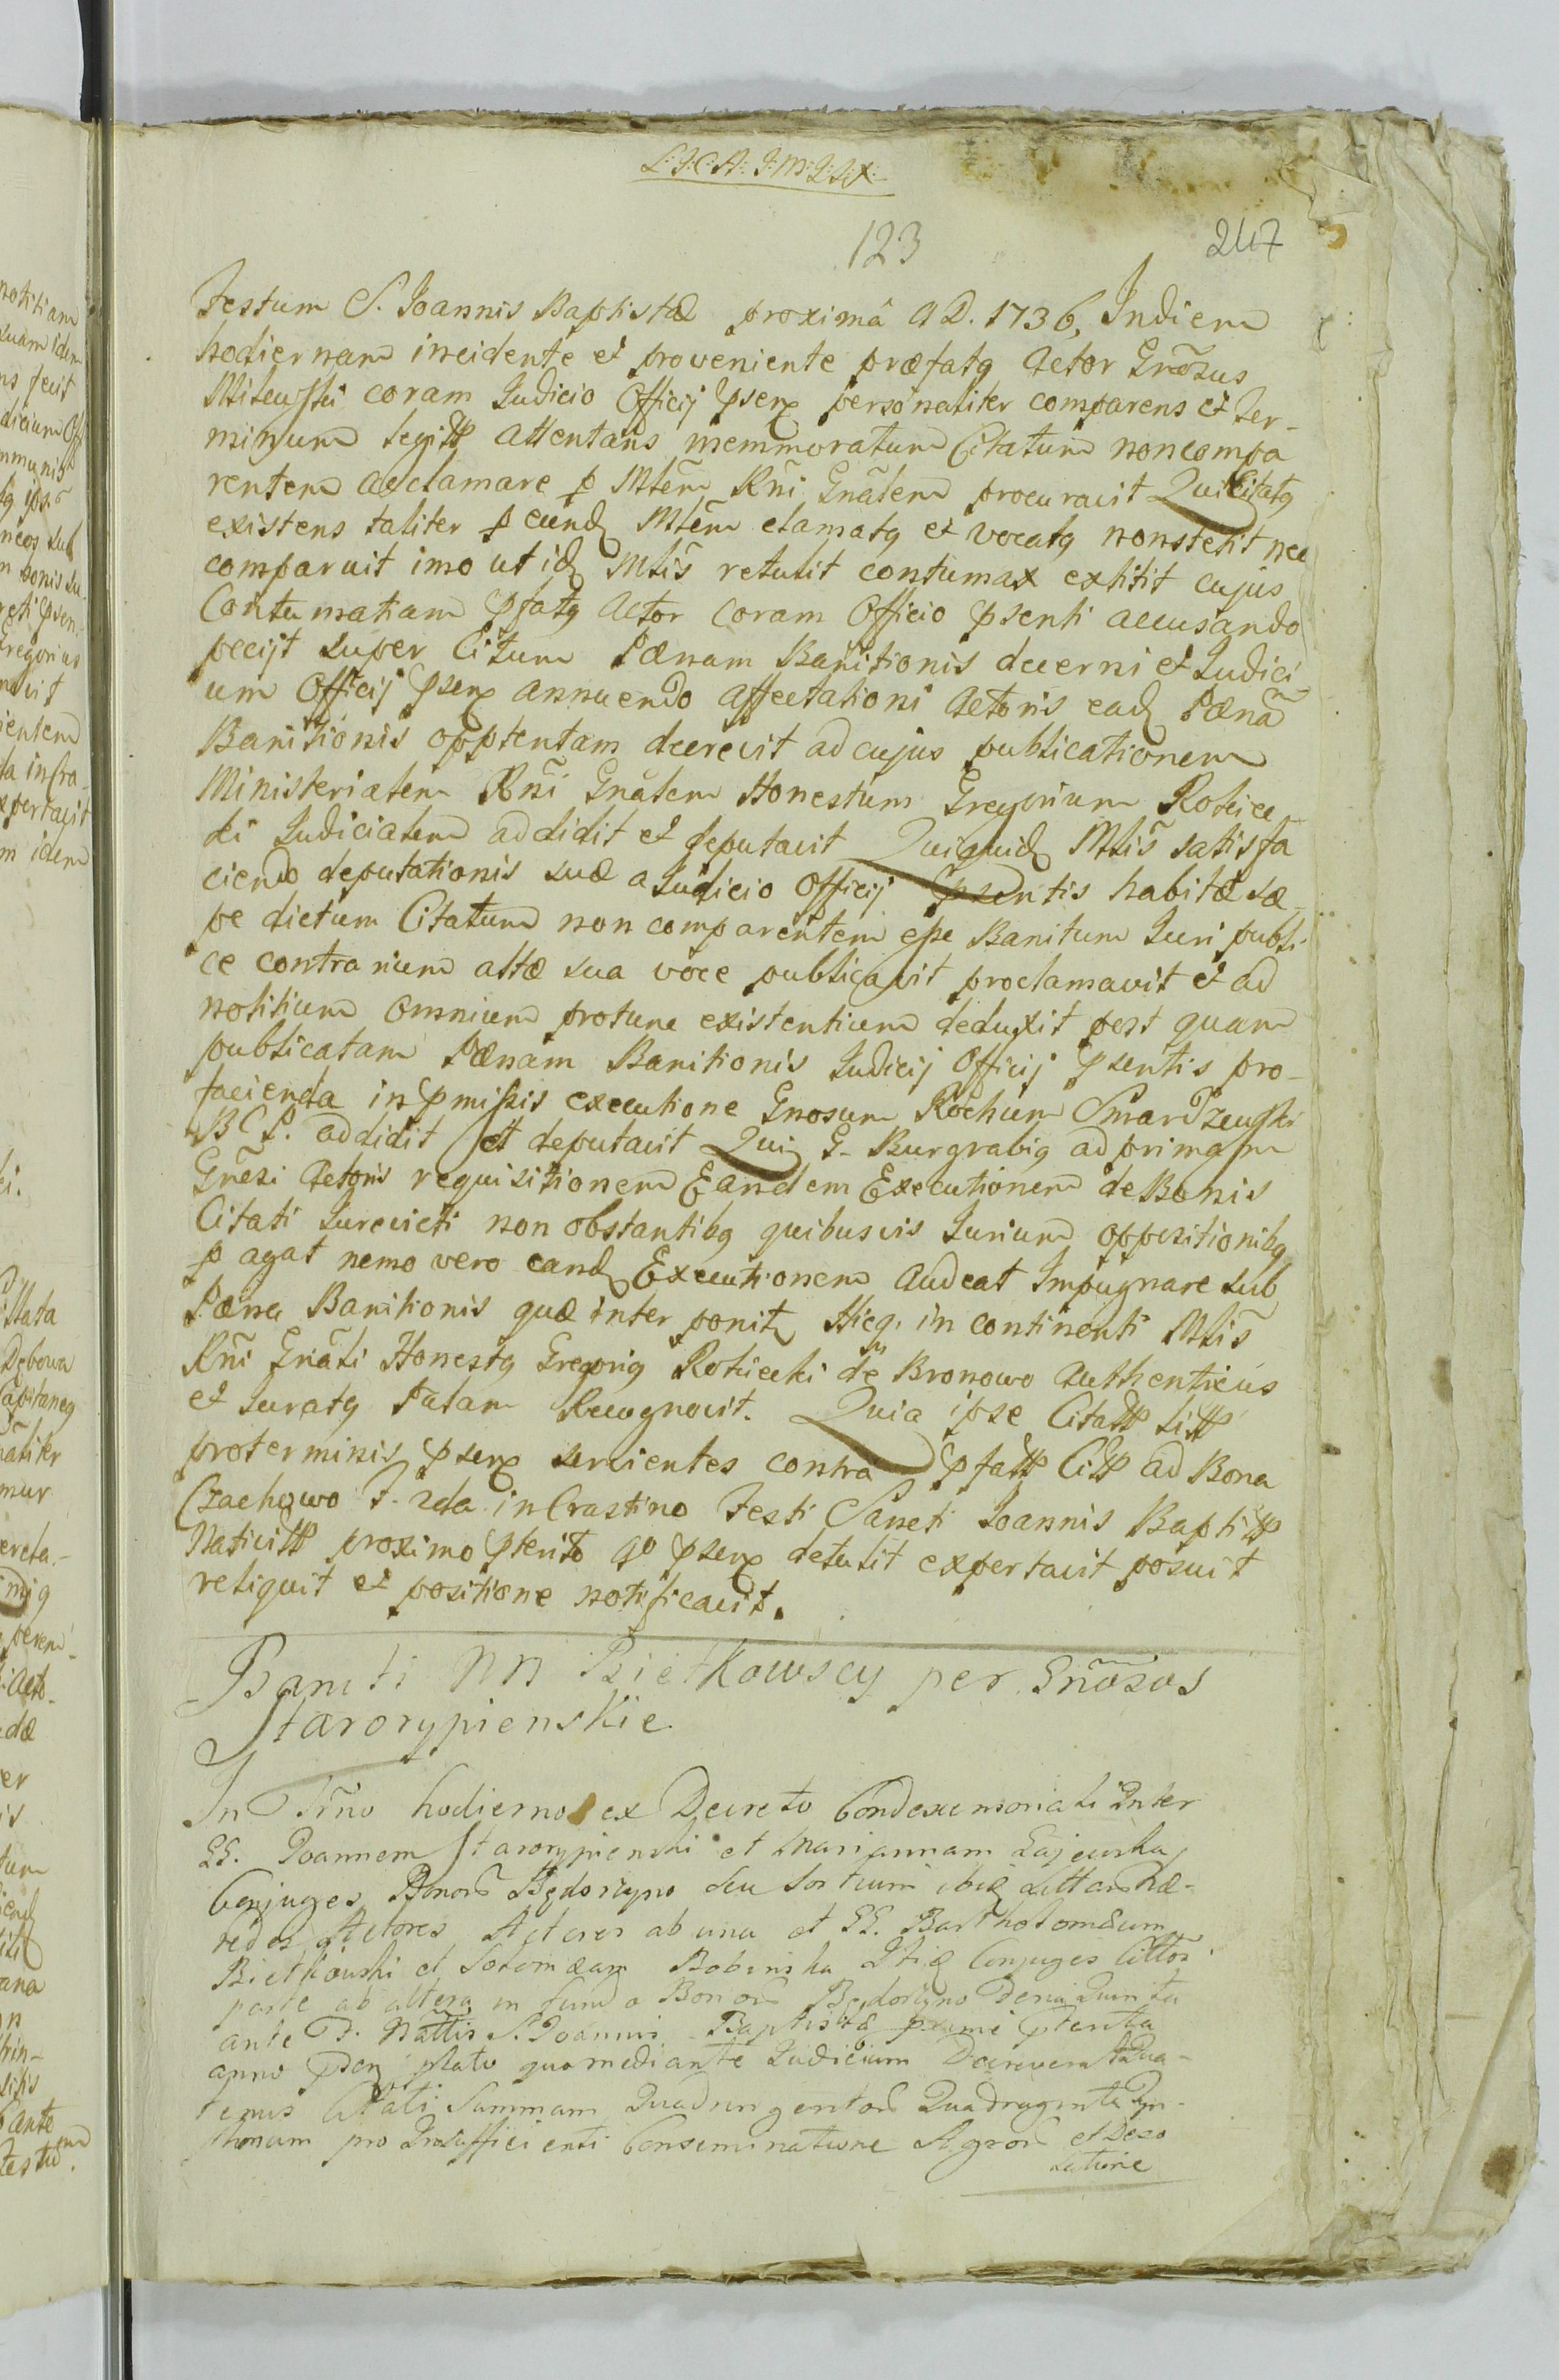 123
247
Festum S. Joannis Baptistæ proximâ A D. 1736, In diem
hodiernam incidente et proveniente præfatq Actor Gnõsus
Milewski coram Judicio Officij pserx personaliter comparens et Ter-
minum legittt attentans memmoratum Citatum noncompa
rentem acclamare p Mlem Rñi Gnãlem procuravit Qui Citatq
existens taliter p eund Mlem clamatq et vocatq nonstetit nec
comparuit imo ut id Mlis retulit contumax extitit cujus
Contumatiam pfatq Actor coram Officio psenti accusando
pecijt super Citum Pænam Banitionis decerni et Judici-
um Officij pserx annuendo affectationi Actoris ead Pænã
Banitionis opptentam decrevit ad cujus publicationem
Ministerialem Rñi Gnãlem Honestum Gregorium Roticc
ki Judicialem addidit et deputavit Quiquid Mlis satisfa
ciendo deputationis suæ a Judicio Officij psentis habitæ sæ-
pe dictum Citatum non comparentem esse Banitum Juri publi-
ce contrarium altæ sua voce publicavit proclamavit et ad
notitium omnium protunc existentium deduxit post quam
publicatam Pænam Banitionis Judicij Officij psentis pro-
facienda in pmissis executione Gnosum Rochum Smardzewski
B C S. addidit et deputavit Qui G- Burgrabiq ad primam
Gñesi Actoris requisitionem Eandem Executionem de Bonis
Citati Jurevicti non obstantibq quibusvis Jurium oppositionibq
p agat nemo vero eand Executionem audeat Impugnare sub
Pæna Banitionis quæ inter ponit Hicq. in continenti Mlis
Rñi Gnãli Honestq Gregoriq Roticcki de Bronowo Authenticus
et Juratq Palam Recognovit. Quia ipse Citattt littt
proterminis pserx servientes contra pfattt Cittt ad Bona
Czachowo F. 2da in Crastino Festi Sancti Joannis Baptittt
Nativittt proximo pterito qo pserx detulit expertavit posuit
reliquit et positione notificavit.
Baniti NN Bietkowscy per Gnõsos
Starorypienskie
In Trño hodierno ex Decreto Condescensoriali Inter
GG. Joannem Starorypienski et Mariannam Gajewska
Conjuges Bonor
redes Actores ab una et GG. Bartholomæum
Bietkowski et Bobinska Conjuges
parte ab altera in fundo Bonor
ante F. Nattis S. Joannis Baptistæ pxime pterita
anno quo mediante Judicium Decreverat Qua-
tenus Citati Summam Quadringentor Quadraginta
pro Insufficienti Conseminatione Agror et Deso
latione